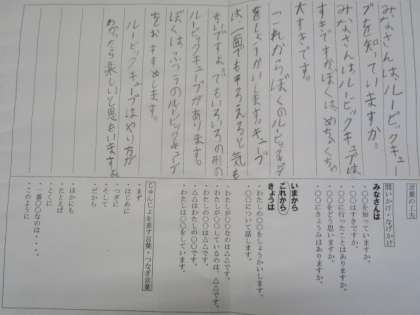 みなさんは、ルービックキュー
ブを知っていますか。
みなさんはルービックキューブは
すきですかぼくは、めちゃくちゃ
大すきです。
これからぼくのルービックキューブ
をしょうかいします。キューブ
は一面でもそろえると気も
ちいいですよ。でもいろいろの形の
ルービックキューブがあります。
ぼくは、ふつうのルービックキューブ
をおすすめします。
ルービックキューブはやり方が
わかったら楽しいと思いますよ。
言葉の工夫
問いかけ・なげかけ
みなさんは
・〇〇を知っていますか。
・〇〇はすきですか。
・〇〇に行ったことはありますか。
・〇〇をどう思いますか。
・〇〇にきょうみはありますか。
いまから
これから
きょうは
・わたしの〇〇をしょうかいします。
・〇〇について話します。
・わたしが〇〇なのは△△です。
・わたしが〇〇しているのは、△△です。
・わたしの〇〇は△△です。
・△△はわたしの〇〇です。
・わたしは〇〇をしています。
じゅんじょを表す言葉・つなぎ言葉
・まず
・はじめに
・つぎに
・そして
・だから
・ほかにも
・たとえば
・とくに
・一番〇〇なのは・・・
・このように